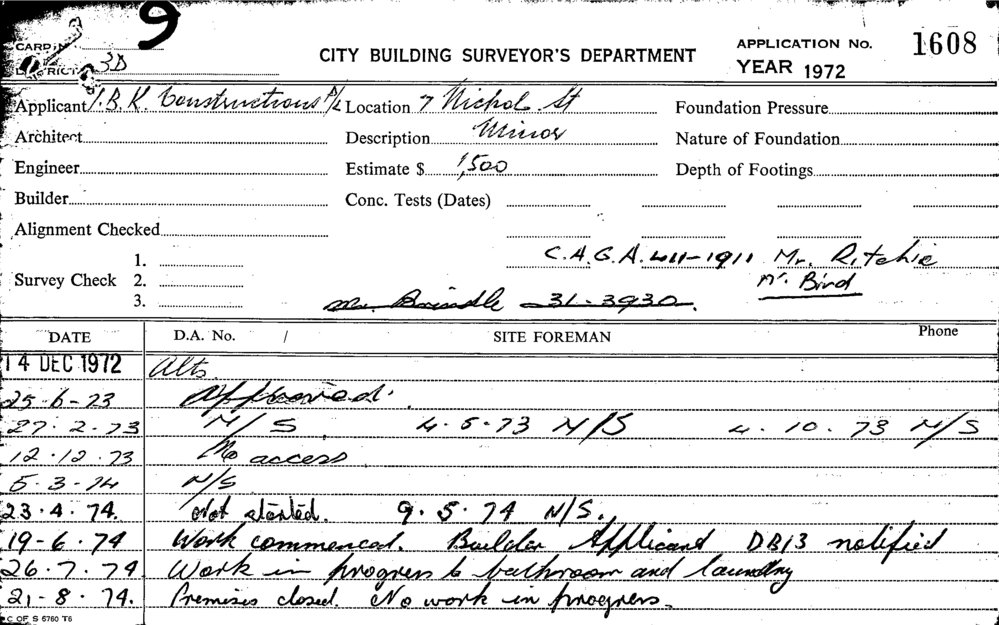 9
CARD
CITY BUILDING SURVEYOR'S DEPARTMENT
APPLICATION No. 1608
DISTRICT 3D
YEAR 1972
Applicant J.B.K. Constructions P/L Location 7 Nichol St Foundation Pressure
Architect Description Minor Nature of Foundation
Engineer Estimate $ 1,500 Depth of Footings
Builder Conc. Tests (Dates)
Alignment Checked
C.A.G.A. 411-1911 Mr. Ritchie
Mr. Bird
Survey Check 1.
2.
3.
Mr. Brindle 31-3930.
DATE D.A. No. / SITE FOREMAN Phone
14 DEC 1972 Alts
25-6-73 Approved.
27.2.73 N/S. 4.5.73 N/S 4.10.73 N/S
12.12.73 No access
5.3.74 N/S
23.4.74. Not started. 9.5.74 N/S.
19-6.74 Work commenced. Builder Applicant DB13 notified
26.7.74 Work in progress to bathroom and laundry
21-8.74. Premises closed. No work in progress.
C OF S 5760 T6